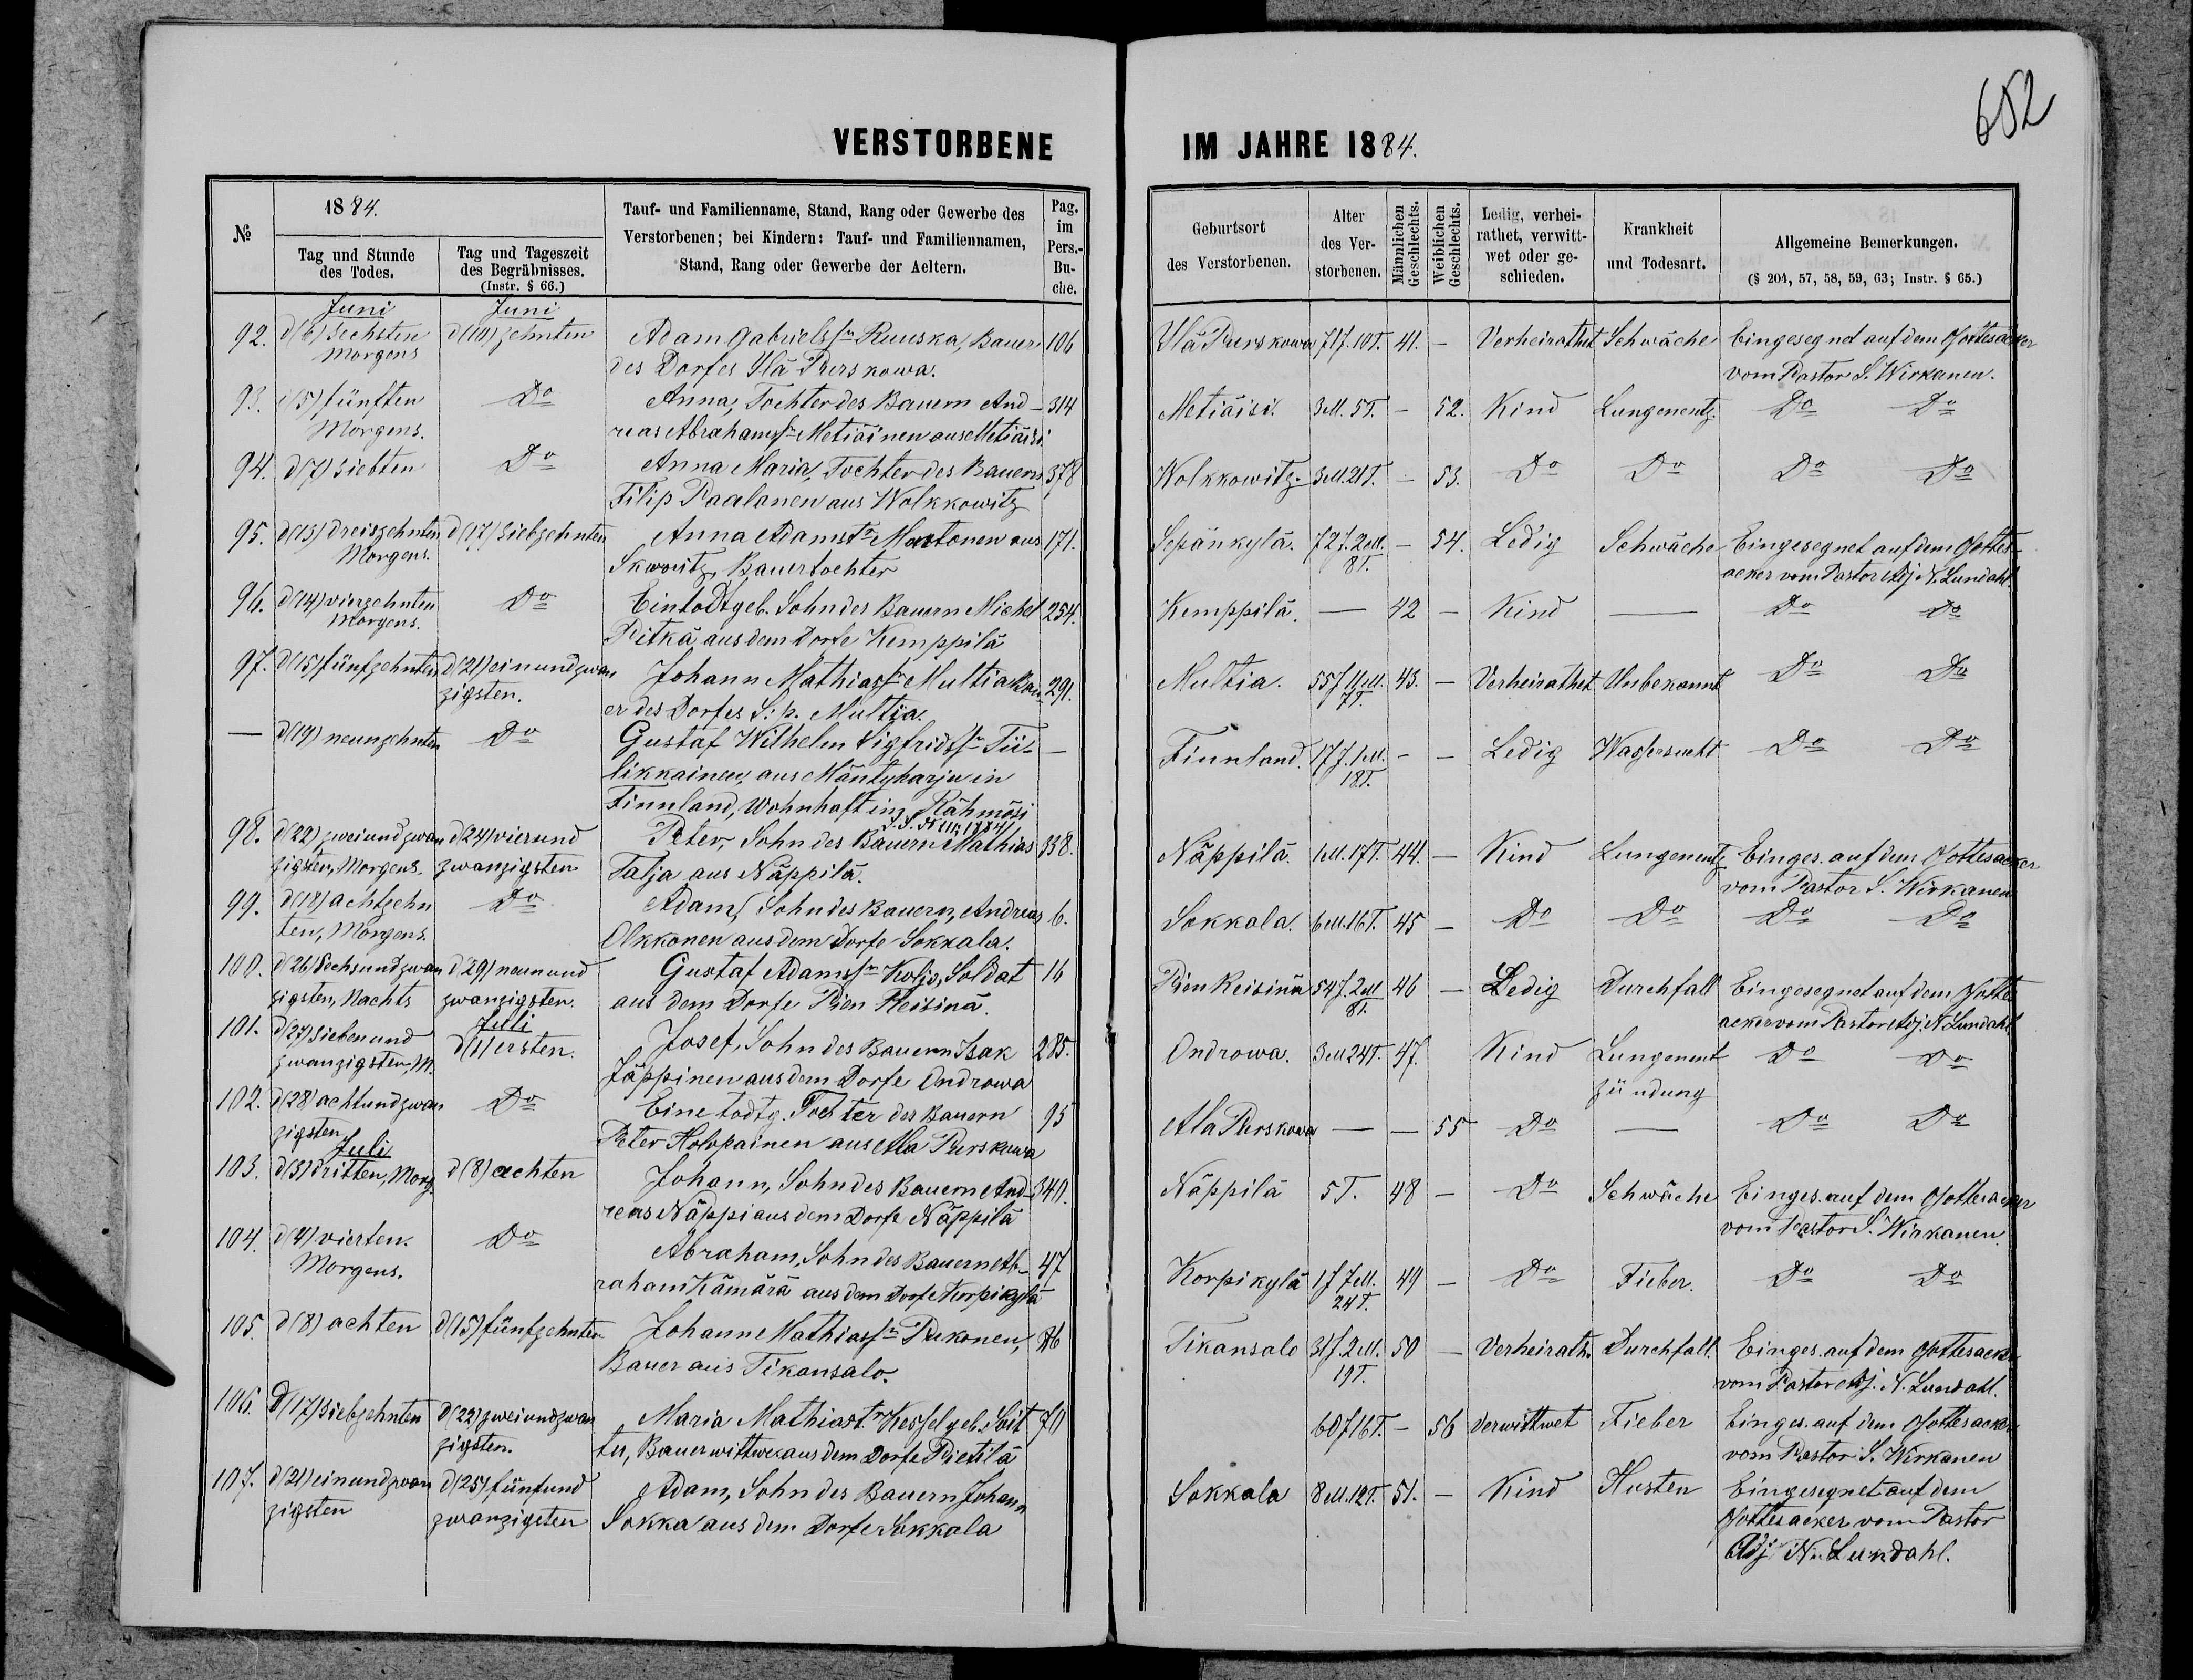 652
VERSTORBENE IM JAHRE 1884.
№
1884.
Tag und Stunde des Todes.
Tag und Tageszeit des Begräbnisses. (Instr. § 66.)
Tauf- und Familienname, Stand, Rang oder Gewerbe des Verstorbenen; bei Kindern: Tauf- und Familiennamen, Stand, Rang oder Gewerbe der Aeltern.
Pag. im Pers.-Buche.
Geburtsort des Verstorbenen.
Alter des Verstorbenen.
Männlichen Geschlechts.
Weiblichen Geschlechts.
Ledig, verheirathet, verwittwet oder geschieden.
Krankheit und Todesart.
Allgemeine Bemerkungen.
(§ 204, 57, 58, 59, 63; Instr. § 65.)
Juni Juni
92. d(6) sechsten d(10) zehnten Adam Gabrielssn Ruuska, Bauer 106 Ylä Purskowa 71 J. 10 T. 41. – Verheirathet Schwäche Eingesegnet auf dem Gottesacker
Morgens des Dorfes Ylä Purskowa. vom Pastor S. Wirkanen.
93. d(5) fünften Do Anna, Tochter des Bauern And- 314 Metiäisi. 3 M. 5 T. – 52. Kind Lungenentz. Do Do
Morgens. reas Abrahamssn Metiäinen aus Metiäisi.
94. d(7) siebten Do Anna Maria, Tochter des Bauern 378 Wolkkowitz. 3 M. 21 T. – 53. Do Do Do Do
Filip Paalanen aus Wolkkowitz
95. d(13) dreizehnten d(17) siebzehnten Anna Adamstr Martonen aus 171. Sepänkylä. 72 J. 2 M. – 54. Ledig Schwäche Eingesegnet auf dem Gottes-
Morgens. Skworitz, Bauertochter 8 T. acker vom Pastor Adj. N. Lundahl.
96. d(14) vierzehnten Do Ein todtgeb. Sohn des Bauern Michel 254. Kemppilä. — 42 – Kind — Do Do
Morgens. Pitkä aus dem Dorfe Kemppilä
97. d(15) fünfzehnten d(21) einundzwan Johann Mathiassn Multia Bau- 291. Multia. 55 J. 11 M. 43. – Verheirathet Unbekannt Do Do
zigsten. er des Dorfes S: p. Multia. 7 T.
— d(19) neunzehnten Do Gustaf Wilhelm Sigfridssn Tii- — Finnland. 17 J. 1 M. – – Ledig Wassersucht Do Do
likkainen aus Mäntyharju in 18 T.
Finnland, Wohnhaft in Rähmösi
98. d(22) zweiundzwan d(24) vierund Peter, Sohn des Bauern Mathias 338. Näppilä. 1 M. 17 T. 44. – Kind Lungenentz Einges. auf dem Gottesacker
zigsten, Morgens. zwanzigsten Talja aus Näppilä. vom Pastor S. Wirkanen
99. d(18) achtzehn Do Adam, Sohn des Bauern, Andreas 6. Sokkala. 6 M. 16 T. 45 – Do Do Do Do
ten, Morgens. Okkonen aus dem Dorfe Sokkala.
100. d(26) Sechsundzwan d(29) neunund Gustaf Adamssn Koljo, Soldat 16 Pien Reisinä 54 J. 2 M 46 – Ledig Durchfall Eingesegnet auf dem Gottes
zigsten, Nachts zwanzigsten. aus dem Dorfe Pien Reisinä. 8 T. acker vom Pastor Adj N Lundahl
Juli
101. d(27) sieben und d(1) ersten. Josef, Sohn des Bauern Isak 285. Ondrowa. 3 M 24 T. 47. Kind Lungenent Do Do
zwanzigsten, M. Jäppinen aus dem Dorfe Ondrowa zündung
102. d(28) achtundzwan Do Eine todtg. Tochter des Bauern 95 Ala Purskowa — – 55 Do — Do Do
zigsten Peter Holopainen aus Ala Purskowa
Juli
103. d(3) dritten, Morg. d(8) achten Johann, Sohn des Bauern And- 340. Näppilä 5 T. 48 – Do Schwäche Einges. auf dem Gottesacker
reas Näppi aus dem Dorfe Näppilä vom Pastor S. Wirkanen.
104. d(4) vierten. Do Abraham, Sohn des Bauern Ab- 47 Korpikylä 1 J 7 M. 49 – Do Fieber. Do Do
Morgens. raham Kämärä aus dem Dorfe Korpikylä 24 T.
105. d(8) achten d(15) fünfzehnten Johann Mathiassn Pukonen, Tikansalo 31 J. 2 M. 50 – Verheirath. Durchfall. Einges. auf dem Gottesacker
Bauer aus Tikansalo. 19 T. vom Pastor Adj. N. Lundahl.
106. d(17) siebzehnten d(22) zweiundzwan Maria Mathiastr Kessel geb. Soit 70 60 J 16 T. – 56 Verwittwet Fieber Einges. auf dem Gottesacker
zigsten. tu, Bauerwittwe aus dem Dorfe Pietilä vom Pastor S. Wirkanen
107. d(21) einundzwan d(25) fünfund Adam, Sohn des Bauern Johann Sokkala 8 M. 12 T. 51. – Kind Husten Eingesegnet auf dem
zigsten zwanzigsten Sokka aus dem Dorfe Sokkala Gottesacker vom Pastor
Adj N. Lundahl.